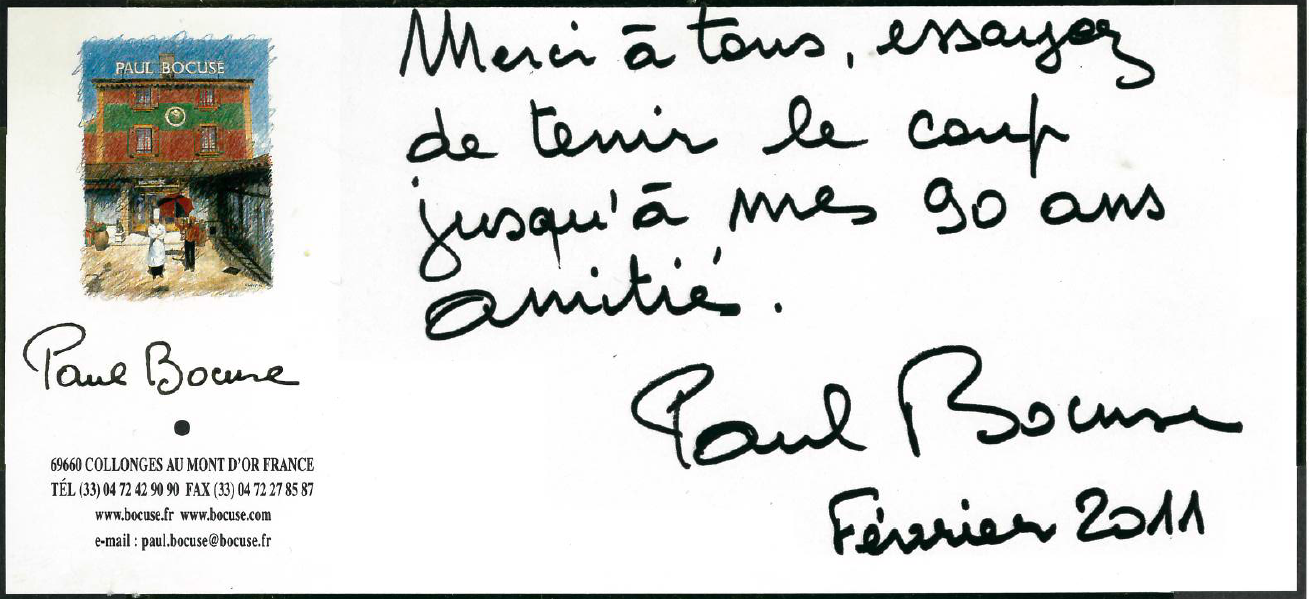 PAUL BOCUSE
Paul Bocuse
69660 COLLONGES AU MONT D'OR FRANCE
TÉL (33) 04 72 42 90 90 FAX (33) 04 72 27 85 87
www.bocuse.fr www.bocuse.com
e-mail : paul.bocuse@bocuse.fr
Merci à tous, essayez
de tenir le coup
jusqu'à mes 90 ans
amitiés.
Paul Bocuse
Février 2011